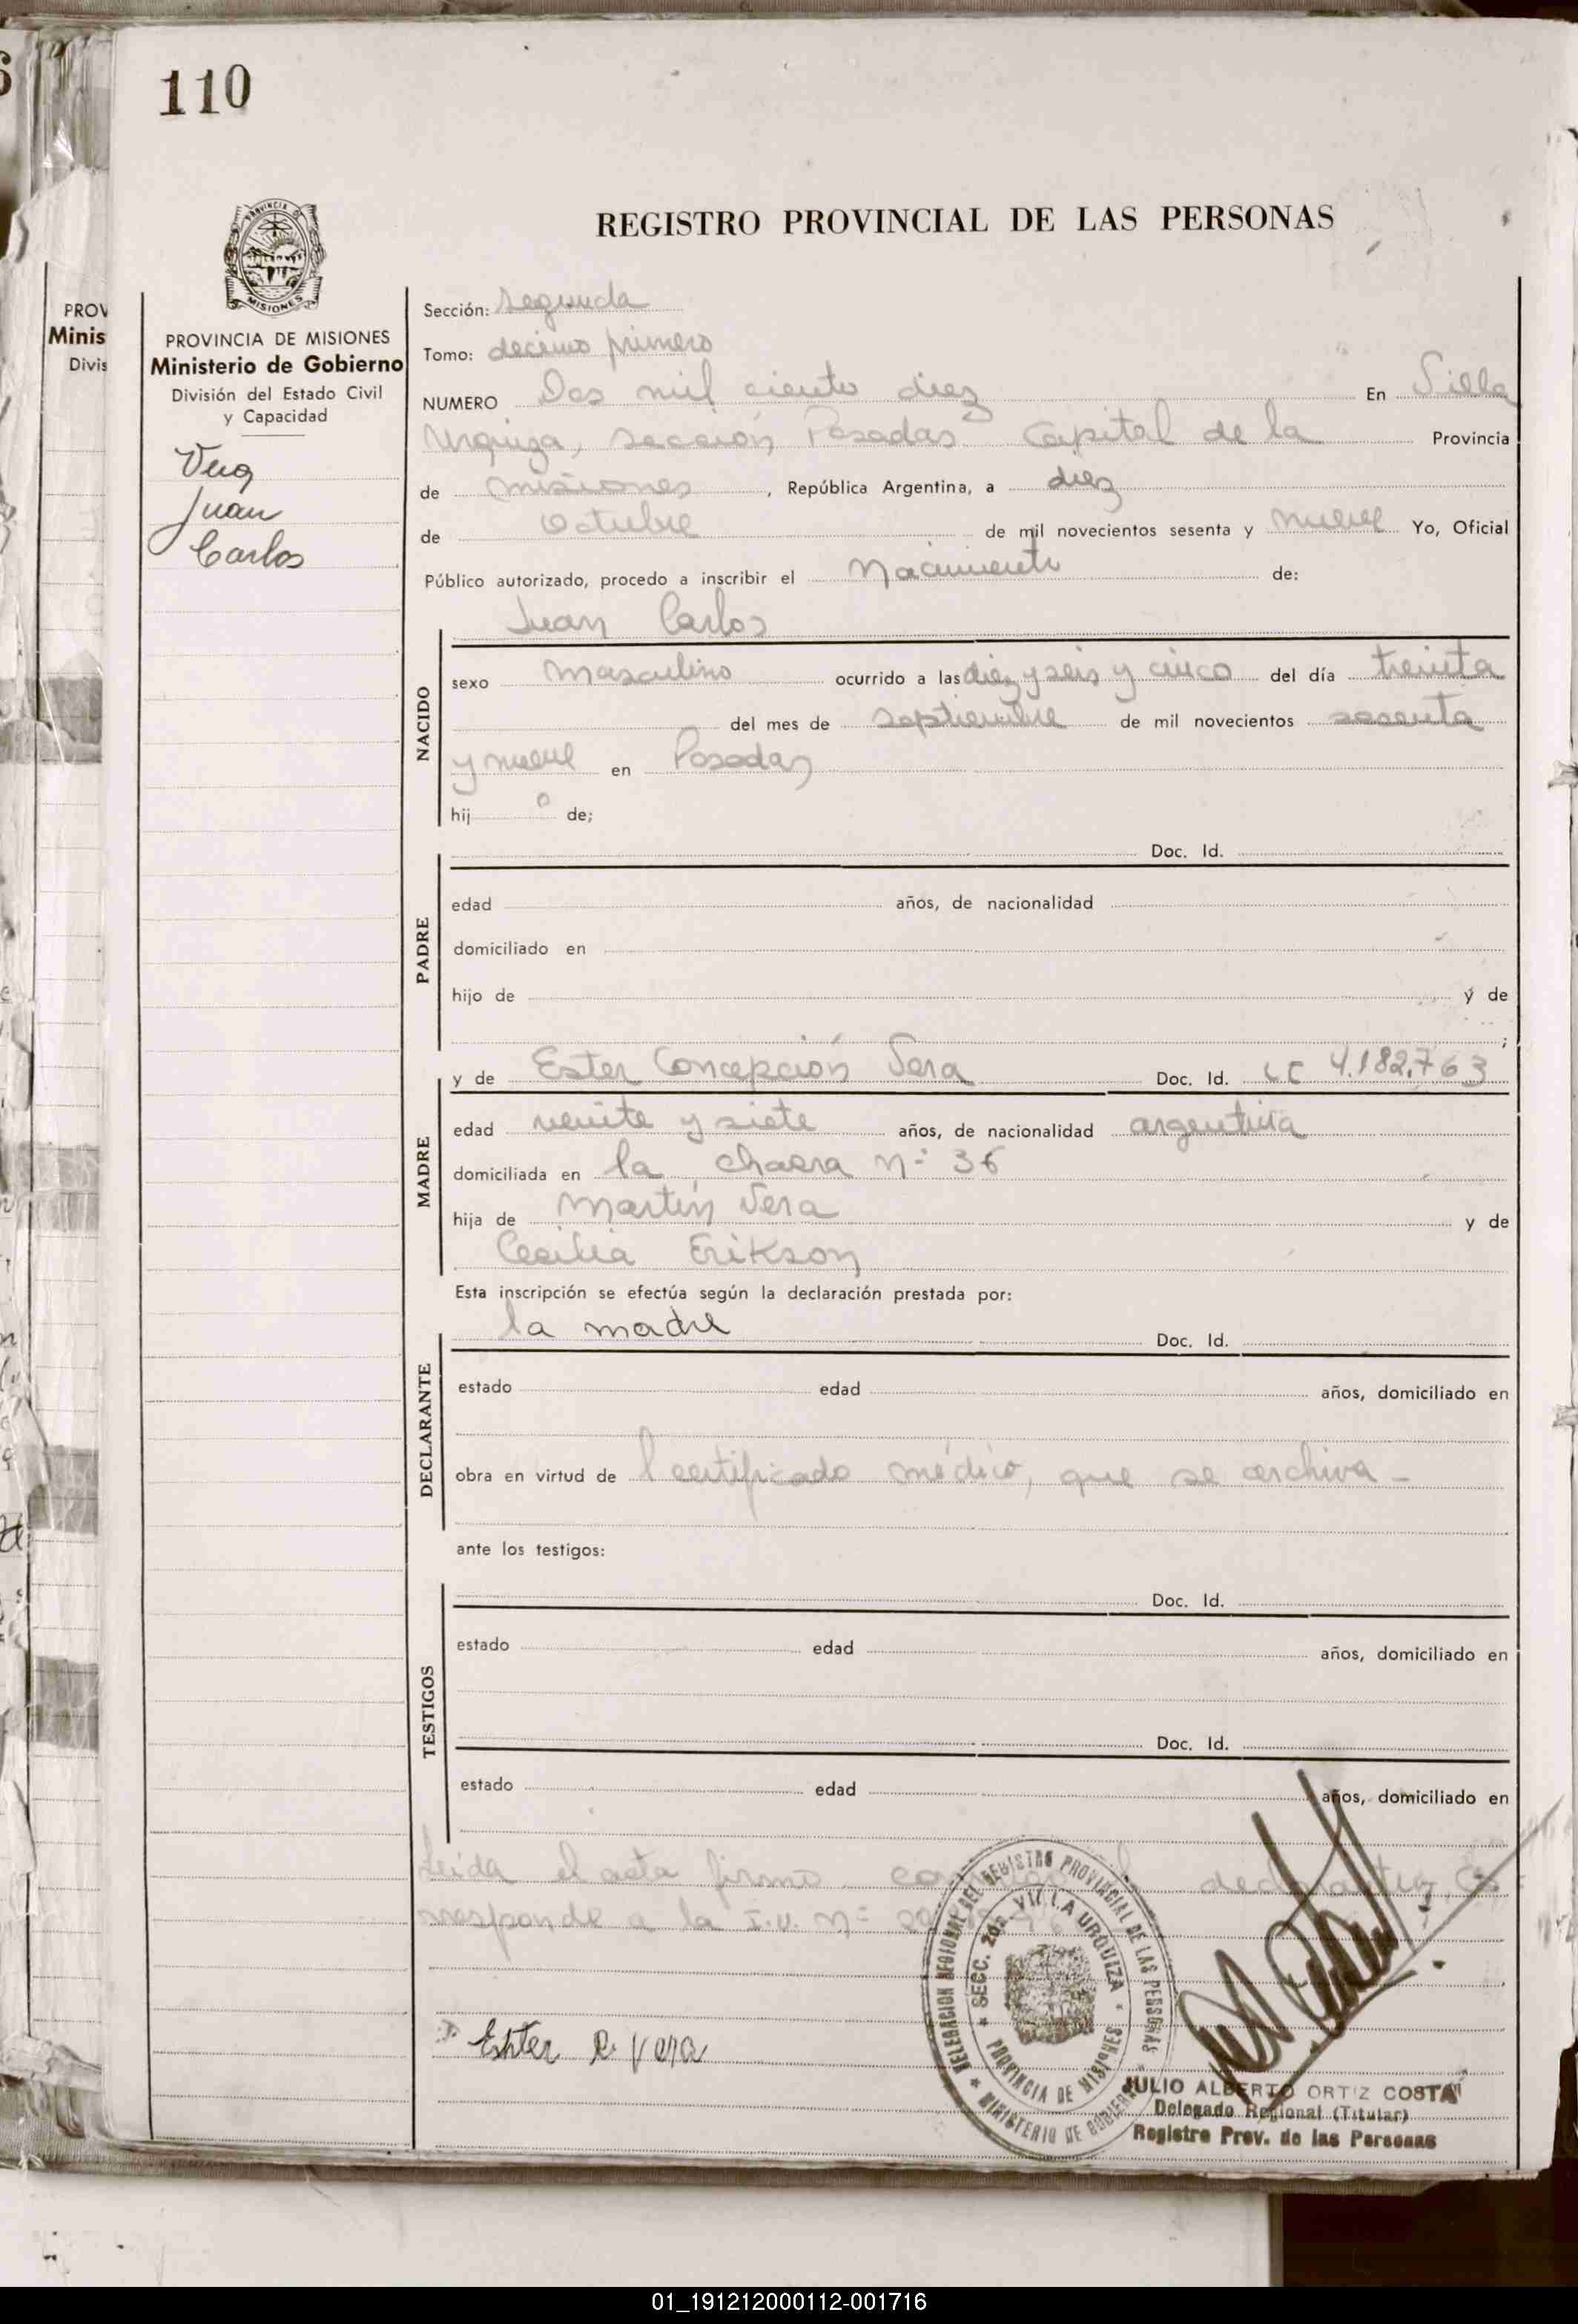 110
REGISTRO PROVINCIAL DE LAS PERSONAS
PROVINCIA DE MISIONES
Ministerio de Gobierno
División del Estado Civil
y Capacidad
Vera
Juan
Carlos
Sección: segunda
Tomo: decimo primero
NUMERO Dos mil ciento diez En Villa
Urquiza, sección Posadas Capital de la Provincia
de Misiones, República Argentina, a diez
de octubre de mil novecientos sesenta y nueve Yo, Oficial
Público autorizado, procedo a inscribir el Nacimiento de:
Juan Carlos
NACIDO
sexo masculino ocurrido a las diez y seis y cinco del día treinta
del mes de septiembre de mil novecientos sesenta
y nueve en Posadas
hijo de;
Doc. Id.
PADRE
edad años, de nacionalidad
domiciliado en
hijo de y de
;
MADRE
y de Ester Concepción Vera Doc. Id. LC 4.182.763
edad veinte y siete años, de nacionalidad argentina
domiciliada en la chacra nº 36
hija de Martín Vera y de
Cecilia Erikson
Esta inscripción se efectúa según la declaración prestada por:
DECLARANTE
la madre Doc. Id.
estado edad años, domiciliado en
obra en virtud de l certificado médico, que se archiva -
ante los testigos:
TESTIGOS
Doc. Id.
estado edad años, domiciliado en
Doc. Id.
estado edad años, domiciliado en
Leída el acta firma
rresponde a la I.V. nº
Ester C. Vera
DELEGACION REGIONAL DEL REGISTRO PROVINCIAL DE LAS PERSONAS
MINISTERIO DE GOBIERNO
SECC. 2da. VILLA URQUIZA
PROVINCIA DE MISIONES
JULIO ALBERTO ORTIZ COSTA
Delegado Regional (Titular)
Registro Prov. de las Personas
01_191212000112-001716